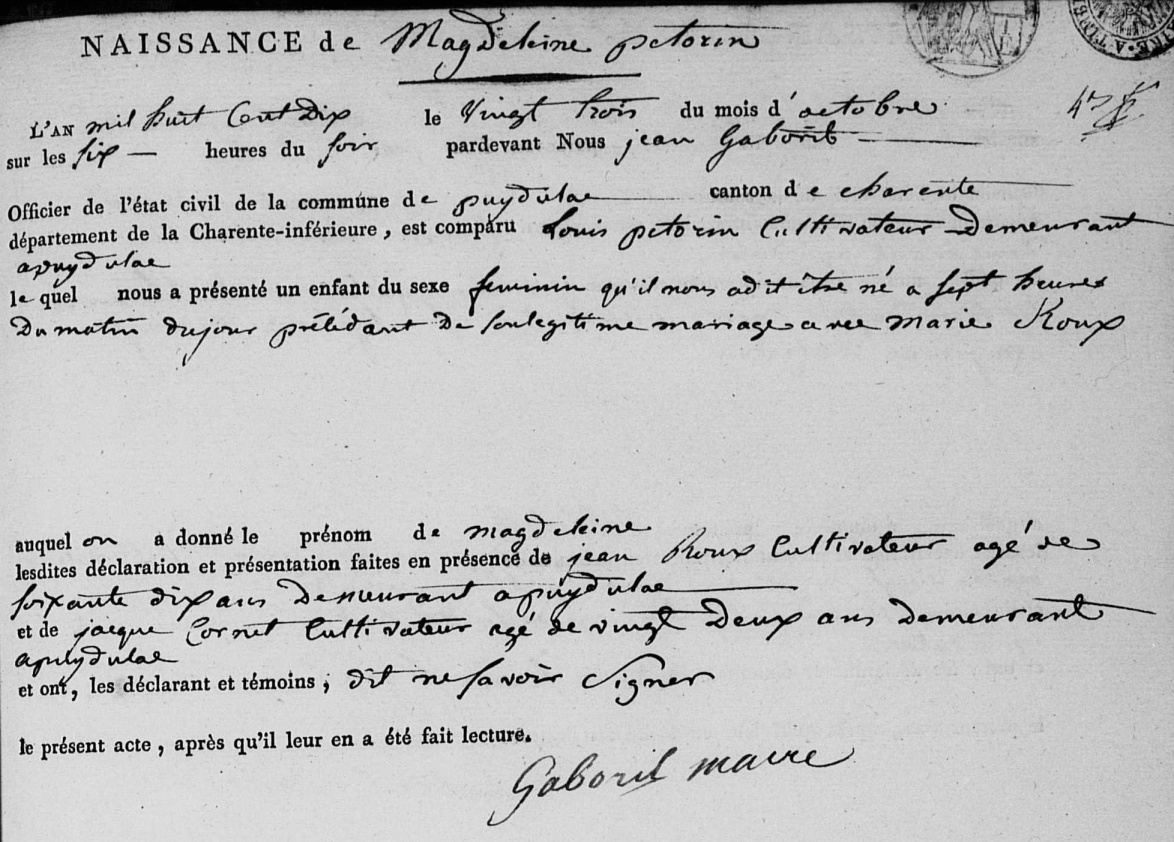 NAISSANCE de Magdeleine petorin
L'AN mil huit Cent Dix le Vingt trois du mois d' octobre
sur les six — heures du soir pardevant Nous jean Gaborit
Officier de l'état civil de la commune de puydulac canton de charente
département de la Charente-inférieure, est comparu Louis petorin Cultivateur Demeurant
apuydulac
le quel nous a présenté un enfant du sexe feminin qu'il nous adit être né a sept heures
Du matin dujour précédant De sonlegitime mariage avec Marie Roux
auquel on a donné le prénom de magdeleine
lesdites déclaration et présentation faites en présence de jean Roux Cultivateur agé de
soixante dix ans Demeurant apuydulac
et de jacque Cornet Cultivateur agé de vingt Deux ans Demeurant
apuydulac
et ont, les déclarant et témoins, dit ne savoir Signer
le présent acte, après qu'il leur en a été fait lecture.
Gaborit maire